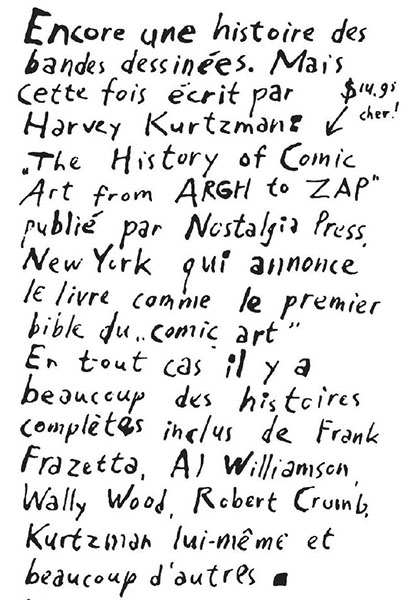 Encore une histoire des
bandes dessinées. Mais
cette fois écrit par $14.95
Harvey Kurtzman: cher!
„The History of Comic
Art from ARGH to ZAP"
publié par Nostalgia Press,
New York qui annonce
le livre comme le premier
bible du „comic art"
En tout cas il y a
beaucoup des histoires
complètes inclus de Frank
Frazetta, Al Williamson,
Wally Wood, Robert Crumb,
Kurtzman lui-même et
beaucoup d'autres